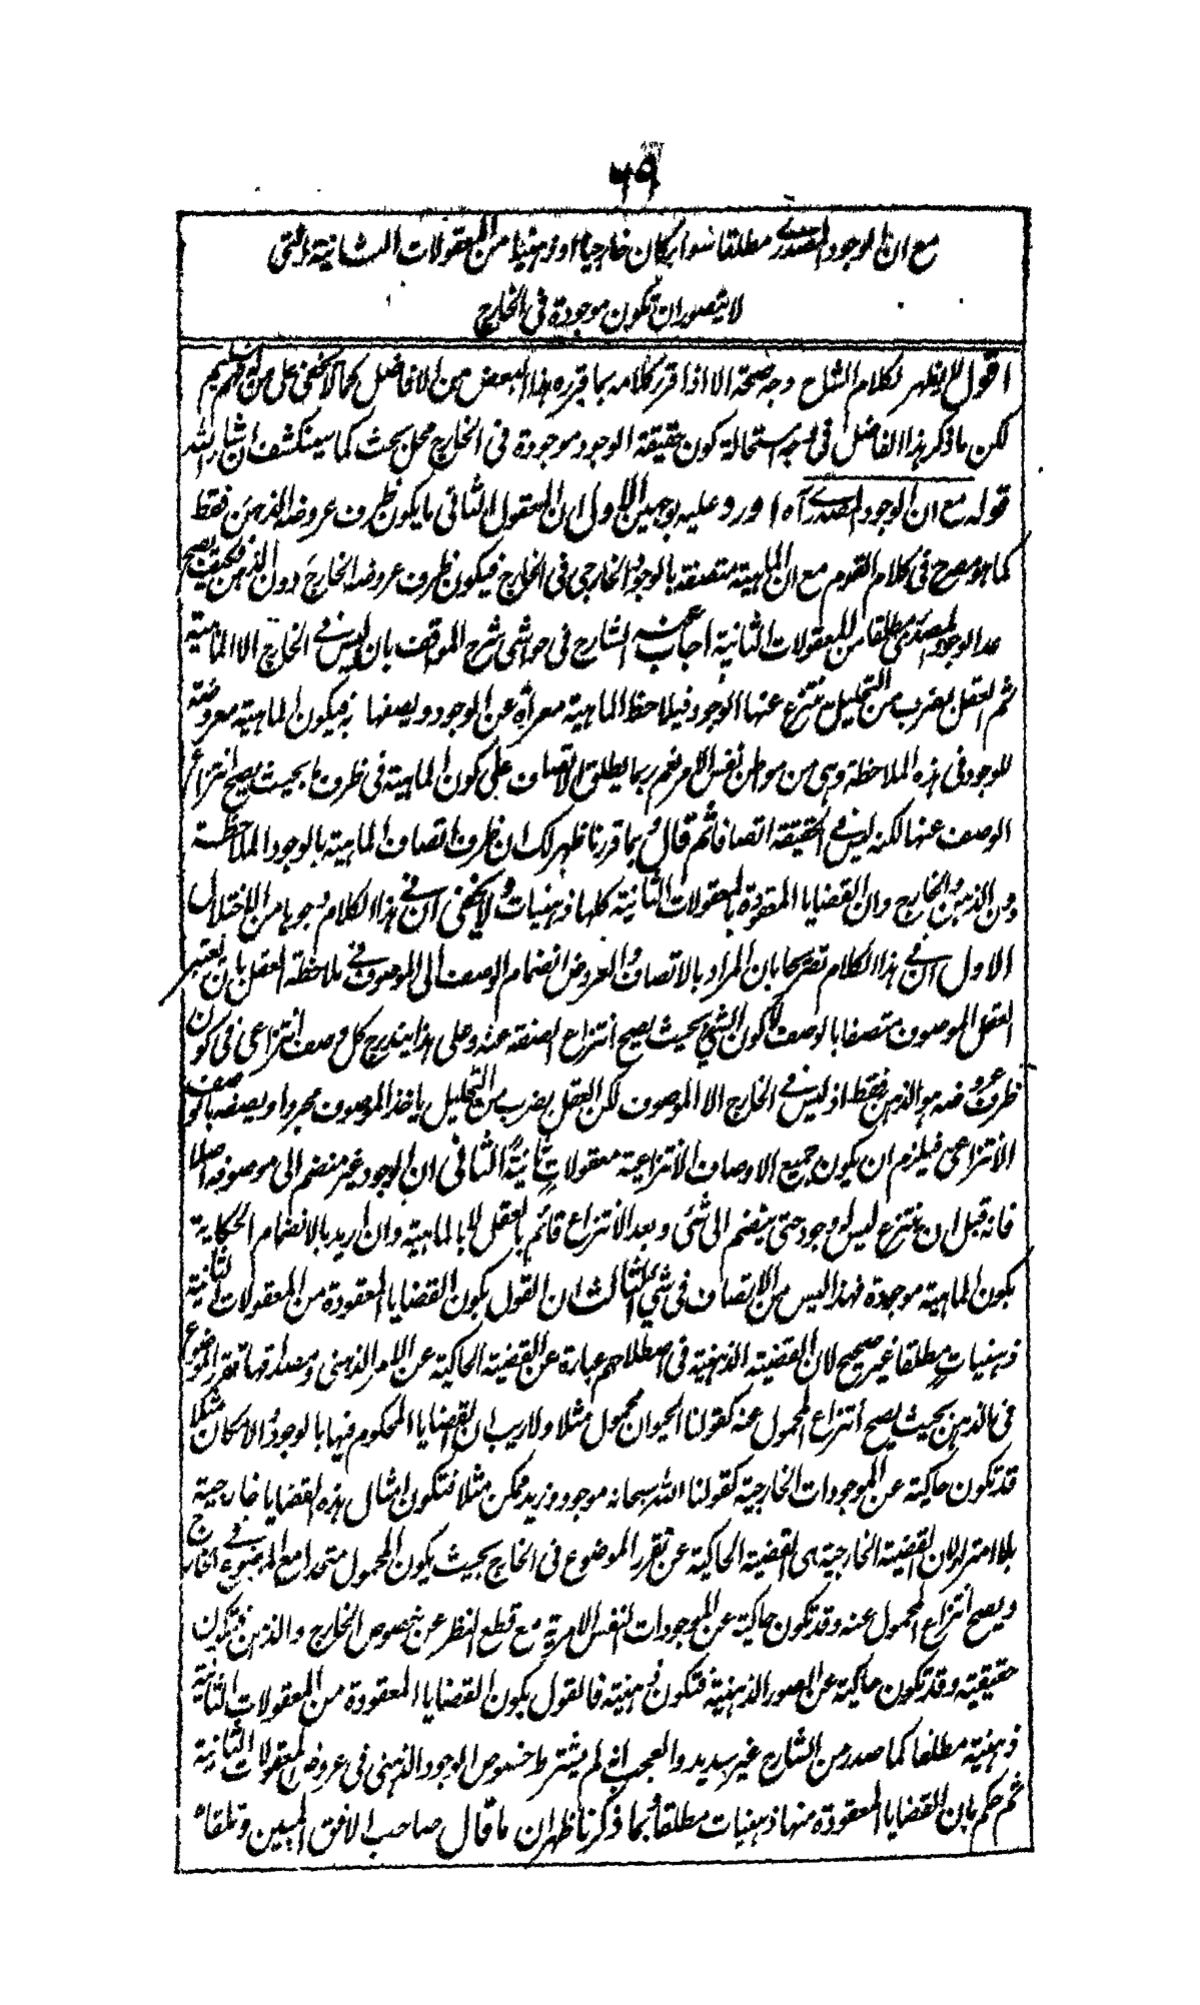 ٦٩
مع ان الوجود المصدرى مطلقا سواء كان خارجيا او ذهنيا من المعقولات الثانية التى
لا يتصور ان تكون موجودة فى الخارج
اقول لا يظهر لكلام الشارح وجه صحة الا اذا قرر كلامه بما قرره هذا البعض من الافاضل كما لا يخفى على من له فهم سليم
لكن ما ذكر هذا الفاضل فى وجه استحالة كون حقيقة الوجود موجودة فى الخارج محل بحث كما سينكشف ان شاء الله
قوله مع ان الوجود المصدرى آه اورد عليه بوجهين الاول ان المعقول الثانى ما يكون ظرف عروضه الذهن فقط
كما هو مصرح فى كلام القوم مع ان الماهية متصفة بالوجود الخارجى فى الخارج فيكون ظرف عروضه الخارج دون الذهن فكيف يصح
عد الوجود المصدرى مطلقا من المعقولات الثانية اجاب عنه الشارح فى حواشى شرح المواقف بان ليس فى الخارج الا الماهية
ثم العقل بضرب من التحليل ينتزع عنها الوجود فيلاحظ الماهية معراة عن الوجود ويصفها به فيكون الماهية معروضة
للوجود فى هذه الملاحظة وهى من مواطن نفس الامر نعم ربما يطلق الاتصاف على كون الماهية فى ظرف ما بحيث يصح انتزاع
الوصف عنها لكنه ليس فى الحقيقة اتصافا ثم قال وبما قررنا ظهر لك ان ظرف اتصاف الماهية بالوجود الملاحظة
دون الذهن والخارج وان القضايا المعقودة بالمعقولات الثانية كلها ذهنيات ولا يخفى ان فى هذا الكلام وجوها من الاختلال
الاول ان فى هذا الكلام تصريحا بان المراد بالاتصاف والعروض انضمام الوصف الى الموصوف فى ملاحظة العقل بان يعتبر
العقل الموصوف متصفا بالوصف لا كون الشئ بحيث يصح انتزاع الصفة عنه وعلى هذا يندرج كل وصف انتزاعى فى كون
ظرف عروضه هو الذهن فقط اذ ليس فى الخارج الا الموصوف لكن العقل بضرب من التحليل ياخذ الموصوف مجردا ويصفه بالوصف
الانتزاعى فيلزم ان يكون جميع الاوصاف الانتزاعية معقولات ثانية الثانى ان الوجود غير منضم الى موصوفه اصلا
فانه قبل ان ينتزع ليس له وجود حتى ينضم الى شئ وبعد الانتزاع قائم بالعقل لا بالماهية وان اريد بالانضمام الحكاية
بكون الماهية موجودة فهذا ليس من الاتصاف فى شئ الثالث ان القول بكون القضايا المعقودة من المعقولات الثانية
ذهنيات مطلقا غير صحيح لان القضية الذهنية فى اصطلاحهم عبارة عن القضية الحاكية عن الامر الذهنى ومصداقها تقرر الموضوع
فى الذهن بحيث يصح انتزاع المحمول عنه كقولنا الحيوان محمول مثلا ولا ريب ان القضايا المحكوم فيها بالوجود والامكان مثلا
قد تكون حاكية عن الموجودات الخارجية كقولنا الله سبحانه موجود وزيد ممكن مثلا فتكون امثال هذه القضايا خارجية
بلا امتراء لان القضية الخارجية هى القضية الحاكية عن تقرر الموضوع فى الخارج بحيث يكون المحمول متحدا مع الموضوع فى الخارج
ويصح انتزاع المحمول عنه وقد تكون حاكية عن الموجودات النفس الامرية مع قطع النظر عن خصوص الخارج والذهن فتكون
حقيقية وقد تكون حاكية عن الصور الذهنية فتكون ذهنية فالقول بكون القضايا المعقودة من المعقولات الثانية
ذهنية مطلقا كما صدر من الشارح غير سديد والعجب انه لم يشترط خصوص الوجود الذهنى فى عروض المعقولات الثانية
ثم حكم بان القضايا المعقودة منها ذهنيات مطلقا وبما ذكرنا ظهر ان ما قال صاحب الافق المبين وتلقاه